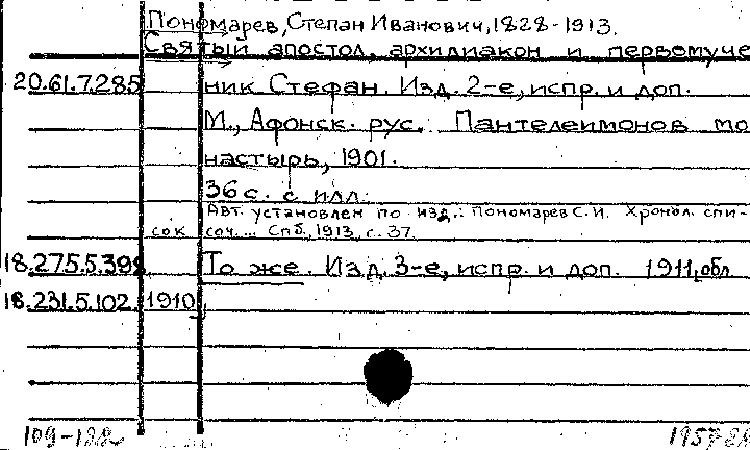 Пономарев, Степан Иванович, 1828-1913.
Святый апостол, архидиакон и первомуче
20.61.7.285 ник Стефан. Изд. 2-е, испр. и доп.
М., Афонск. рус. Пантелеимонов мо
настырь, 1901.
36 с. с илл.
Авт. установлен по изд.: Пономарев С.И. Хронол. спи-
сок соч... Спб, 1913, с. 37.
18.275.5.399 То же. Изд. 3-е, испр. и доп. 1911, обл
18.231.5.102. 1910
109-122